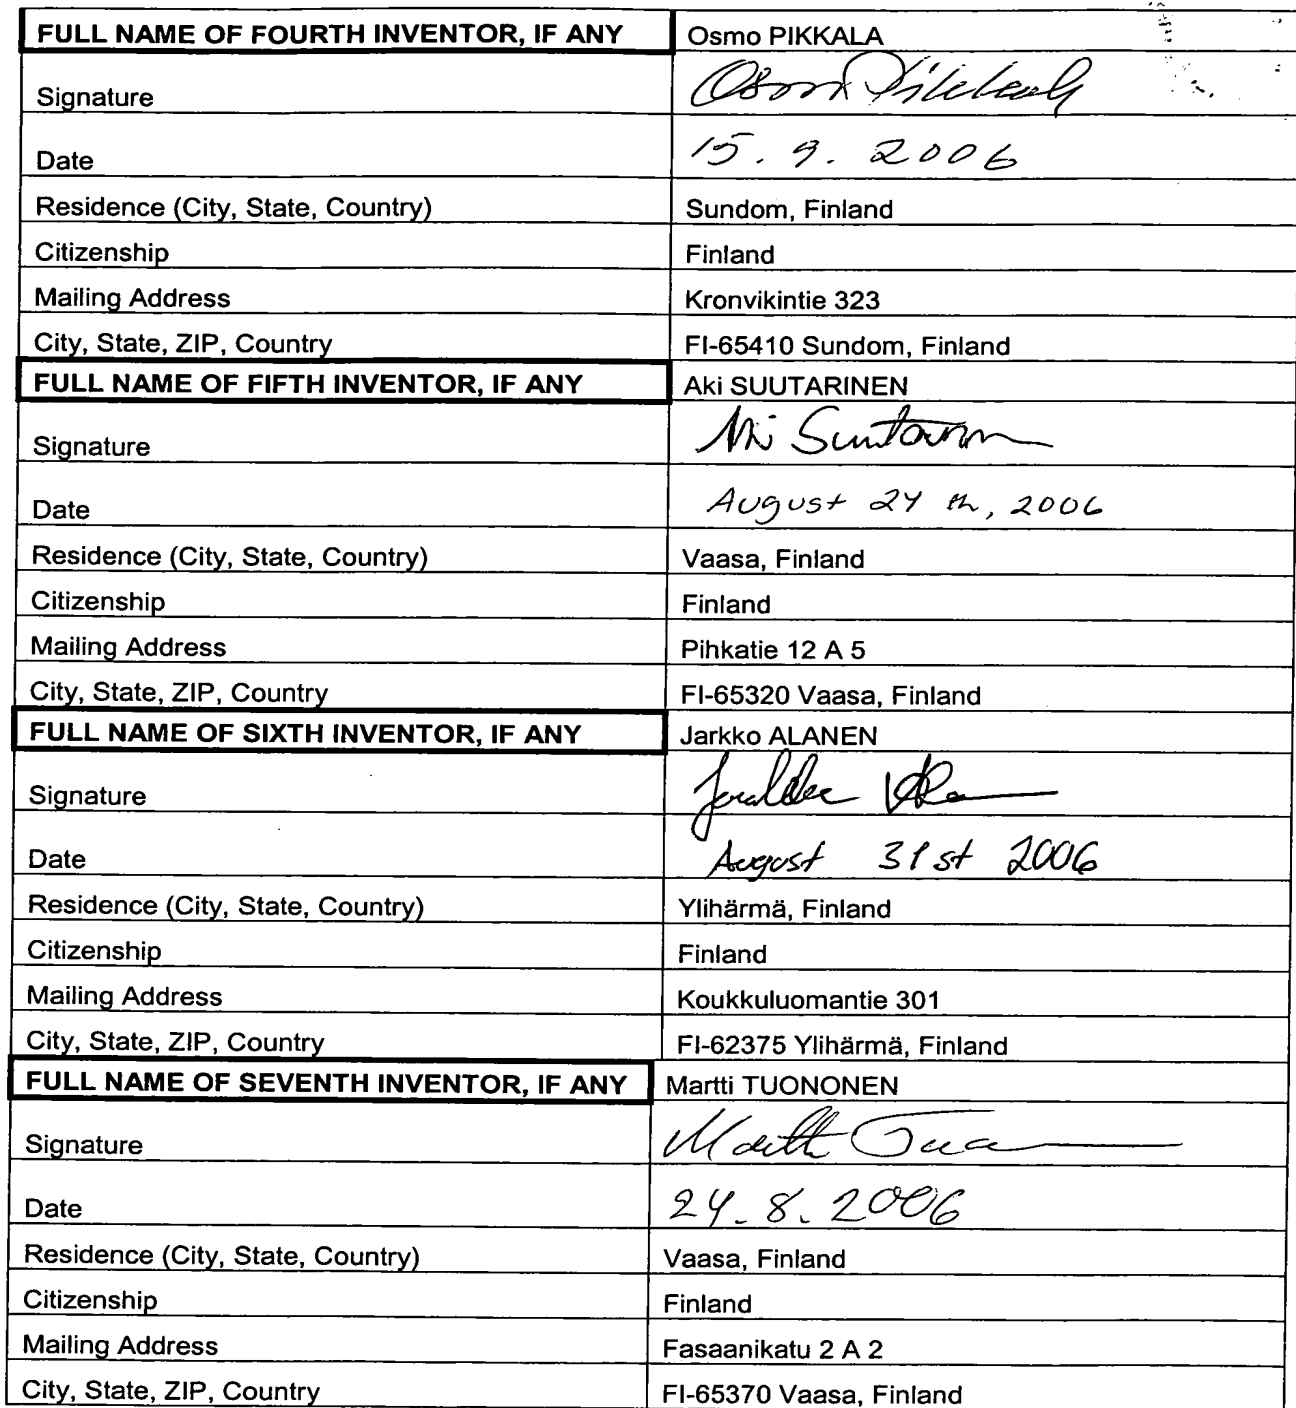 FULL NAME OF FOURTH INVENTOR, IF ANY Osmo PIKKALA
Signature Osmo Pikkala
Date 15. 9. 2006
Residence (City, State, Country) Sundom, Finland
Citizenship Finland
Mailing Address Kronvikintie 323
City, State, ZIP, Country FI-65410 Sundom, Finland
FULL NAME OF FIFTH INVENTOR, IF ANY Aki SUUTARINEN
Signature Aki Suutarinen
Date August 24 th, 2006
Residence (City, State, Country) Vaasa, Finland
Citizenship Finland
Mailing Address Pihkatie 12 A 5
City, State, ZIP, Country FI-65320 Vaasa, Finland
FULL NAME OF SIXTH INVENTOR, IF ANY Jarkko ALANEN
Signature Jarkko Ala
Date August 31st 2006
Residence (City, State, Country) Ylihärmä, Finland
Citizenship Finland
Mailing Address Koukkuluomantie 301
City, State, ZIP, Country FI-62375 Ylihärmä, Finland
FULL NAME OF SEVENTH INVENTOR, IF ANY Martti TUONONEN
Signature Martti Tuo
Date 24. 8. 2006
Residence (City, State, Country) Vaasa, Finland
Citizenship Finland
Mailing Address Fasaanikatu 2 A 2
City, State, ZIP, Country FI-65370 Vaasa, Finland